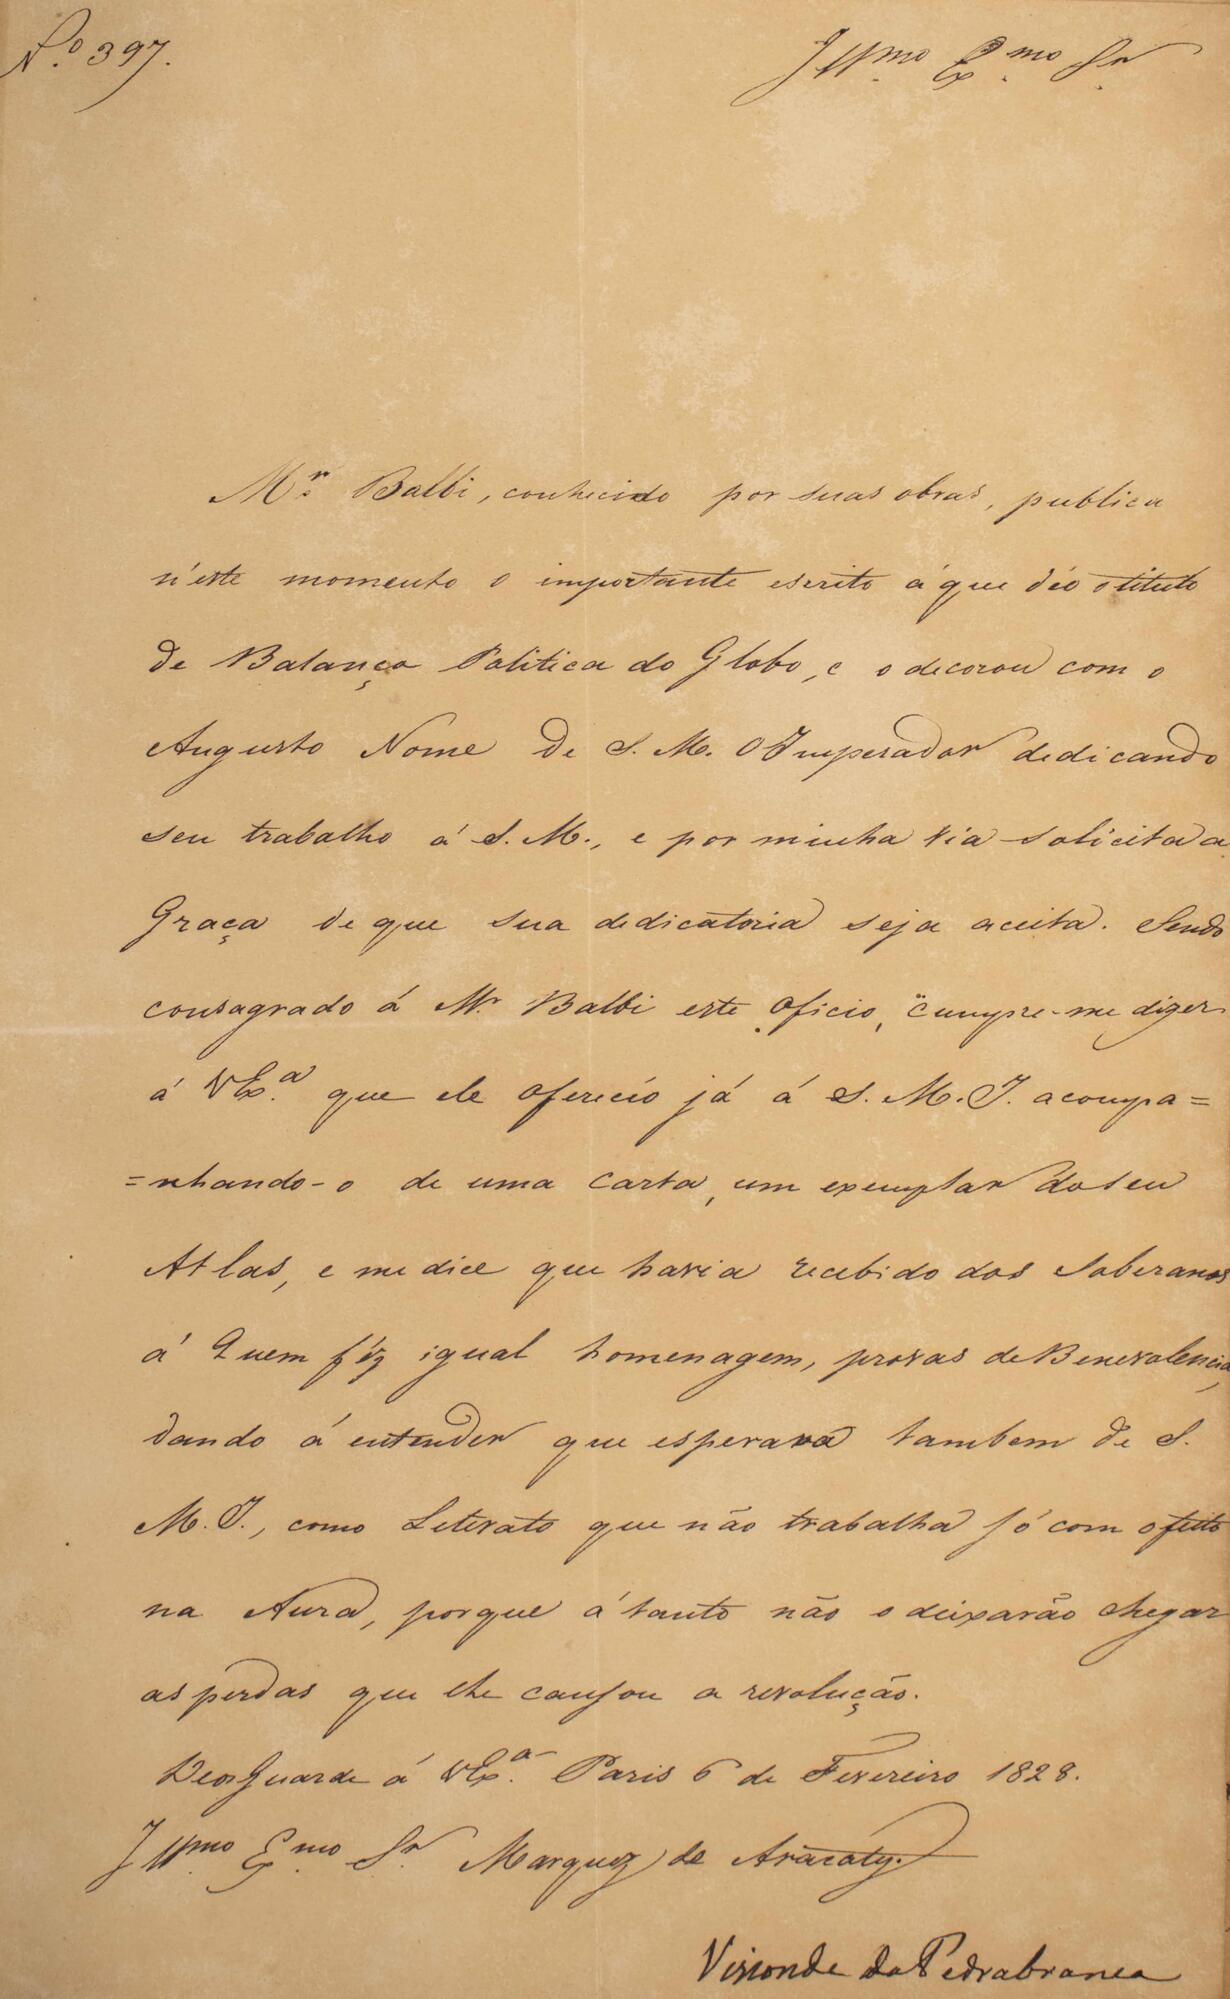 N.º 397.
Illmo Exmo Snr
Mr. Balbi, conhecido por suas obras, publica
n'este momento o importante escrito á que déo o titulo
de Balança Politica do Globo, e o decorou com o
Augusto Nome de S. M. O Imperador dedicando
seu trabalho á S. M., e por minha via solicita a
Graça de que sua dedicatoria seja aceita. Sendo
consagrado á Mr. Balbi este oficio, cumpre-me dizer
á V Ex.ª que ele ofereció já á S. M. I. acompa=
=nhando-o de uma carta, um exemplar do seu
Atlas, e me dice que havia recebido dos Soberanos
á Quem féz igual homenagem, provas de Benevolencia,
dando á entender que esperava tambem de S.
M. I., como Literato que não trabalha só com o fitto
na Aura, porque á tanto não o deixarão chegar
as perdas que lhe causou a revolução.
Deos Guarde á V Ex.ª Paris 6 de Fevereiro 1828.
Illmo Exmo Snr Marquez de Aracaty.
Visconde da Pedrabranca